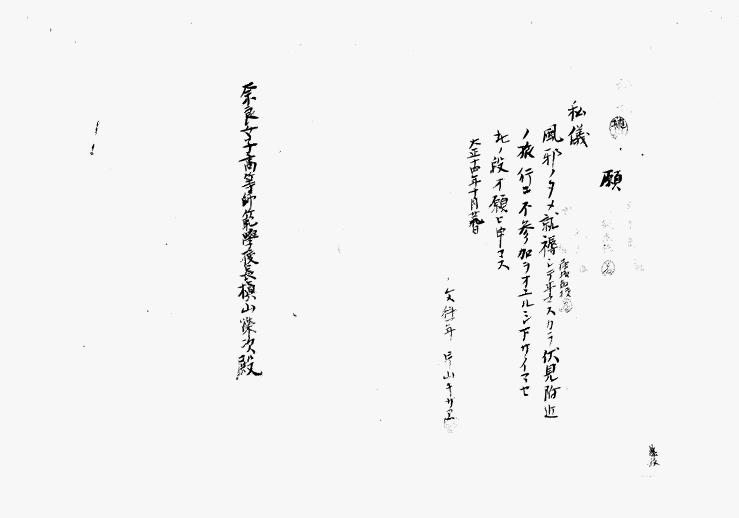 願
私儀
風邪ノタメ就褥シテ居マスカラ伏見附近
ノ旅行ニ不参加ヲオユルシ下サイマセ
此ノ段オ願ヒ申マス
大正十四年十月
文科一年 片山キサヱ
奈良女子高等師範學校長槇山榮次殿